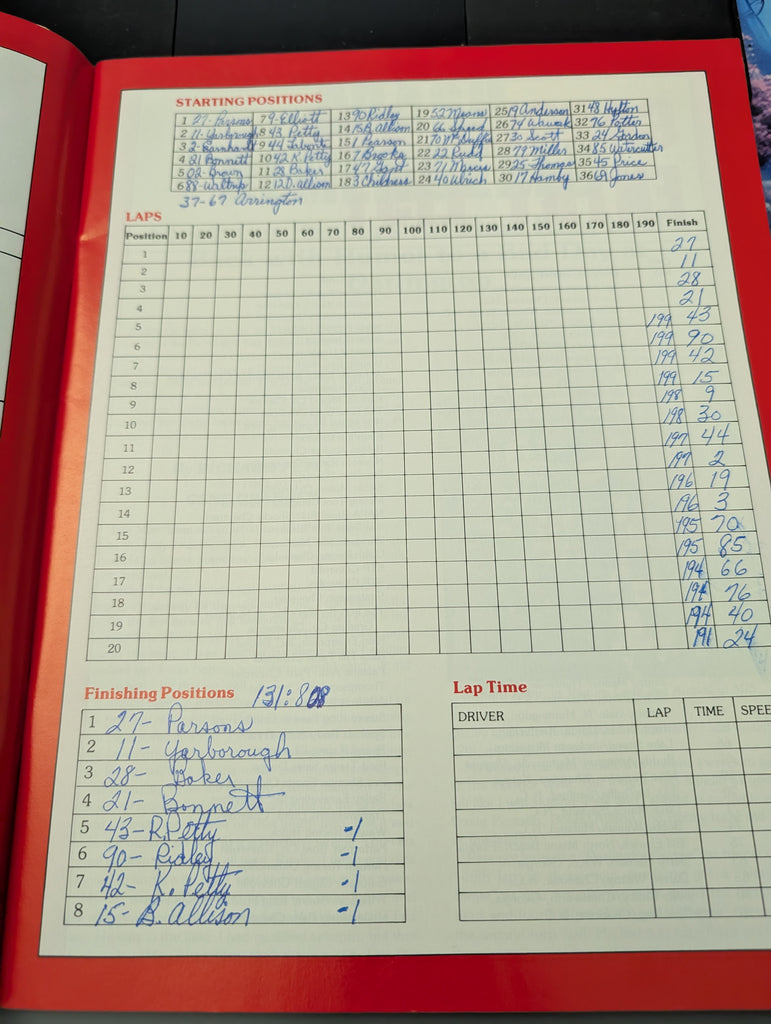 STARTING POSITIONS
1 27-Parsons 7 9-Elliott 13 90 Ridley 19 52 Means 25 19 Anderson 31 48 Hylton
2 11-Yarborough 8 43 Petty 14 15 B. Allison 20 66 Speed 26 74 Wawak 32 76 Potter
3 2-Earnhardt 9 44 Labonte 15 1 Pearson 21 70 McDuffie 27 30 Scott 33 24 Gordon
4 21 Bonnett 10 42 K. Petty 16 7 Brooks 22 22 Rudd 28 79 Miller 34 85 Watercutter
5 02-Brown 11 28 Baker 17 47 23 71 Marcis 29 25 Thomas 35 45 Price
6 88 Waltrip 12 12 D. Allison 18 3 Childress 24 40 Ulrich 30 17 Hamby 36 69 Jones
37-67 Arrington
LAPS
Position 10 20 30 40 50 60 70 80 90 100 110 120 130 140 150 160 170 180 190 Finish
1 27
2 11
3 28
4 21
5 199 43
6 199 90
7 199 42
8 199 15
9 198 9
10 198 30
11 197 44
12 197 2
13 196 19
14 196 3
15 195 70
16 195 85
17 194 66
18 194 76
19 194 40
20 191 24
Finishing Positions 131:808
1 27- Parsons
2 11- Yarborough
3 28- Baker
4 21- Bonnett
5 43- R. Petty -1
6 90- Ridley -1
7 42- K. Petty -1
8 15- B. Allison -1
Lap Time
DRIVER LAP TIME SPEE